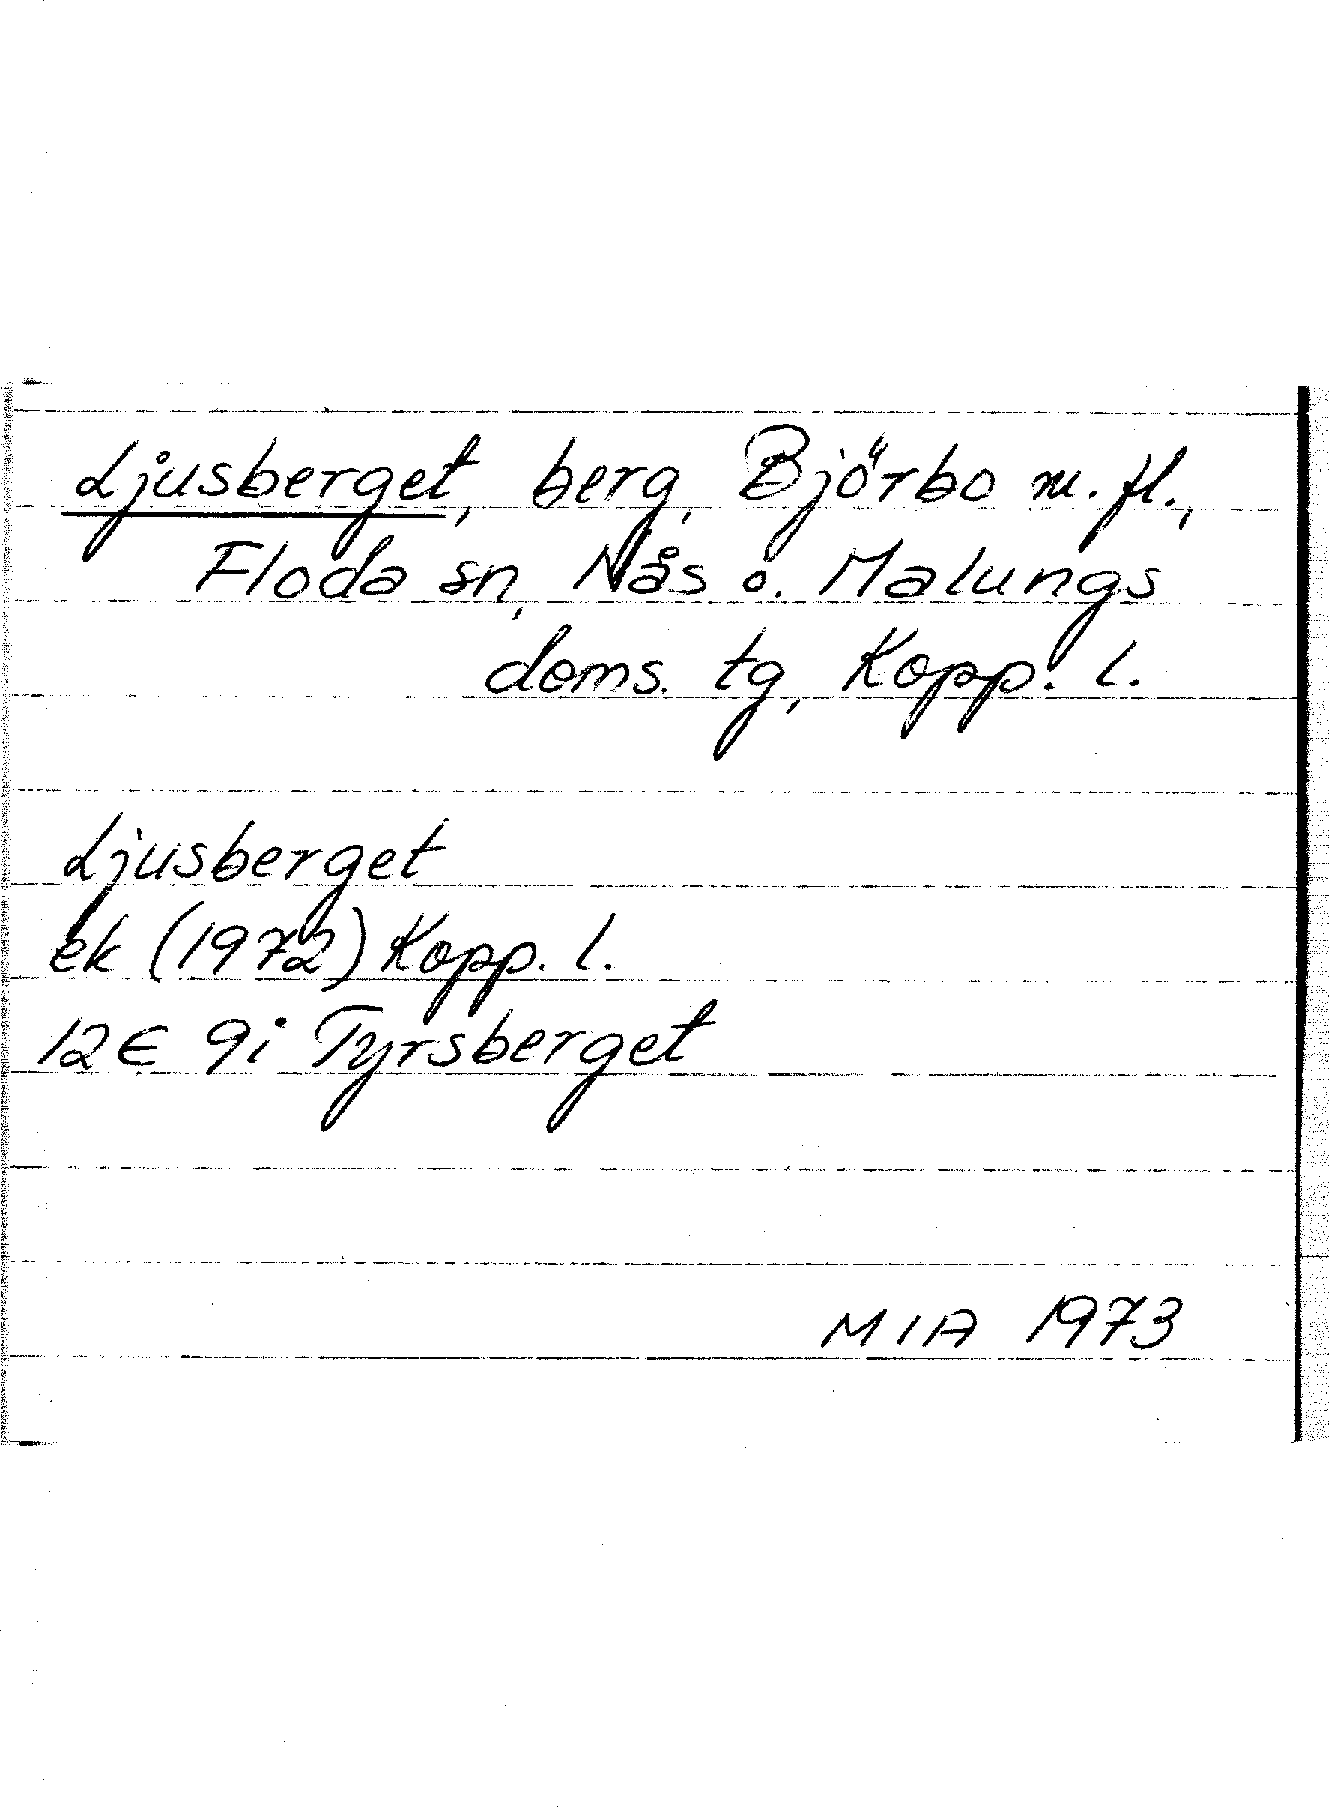 Ljusberget, berg, Björbo m. fl.,
Floda sn, Nås o. Malungs
doms. tg, Kopp. l.
Ljusberget
ek (1972) Kopp. l.
12E 9i Tyrsberget
MIA 1973